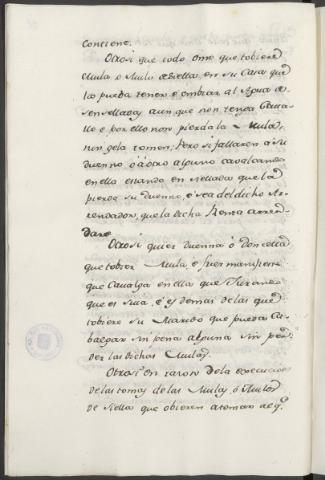 Contiene.
Otrosi que todo ome que tobiere
Mula o Mulo de Siella, en su Casa que
las pueda tener é embiar al Agua de-
sensellada, aun que non tenga Cava-
llo e por ello non pierda la Mula,
nin gela tomen; Pero si fallaren á su
duenno, ó á otro alguno cavalgando
en ella estando ensellada que la
pierda su duenno, é sea del dicho Ar-
rendador, que la dicha Renta arren-
dare
Otrosi quier duenna ó Doncella
que tobier Mula é fuer manifiesto
que Cavalga en ella que Jurando
que es sua, é y demas de las que
tobiere su Marido que pueda Ca-
balgar sin pena alguna sin per-
der las dichas Mulas
Otrosi En razon de la execucion
de las tomas de las Mulas ó Mulos
de Siella que obieren a tomar de q.e